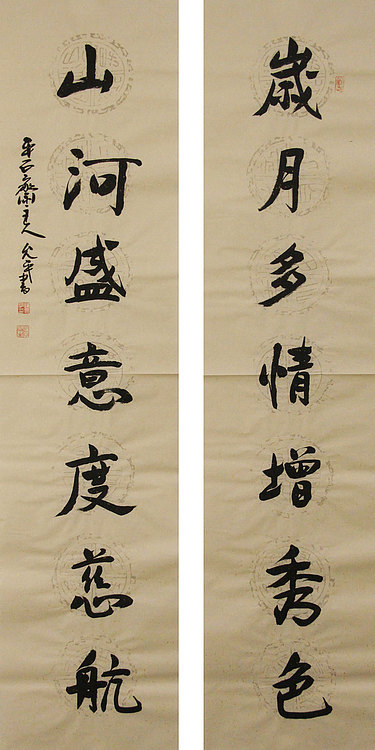 歲月多情增秀色
山河盛意度慈航
平石齋主人 允平書